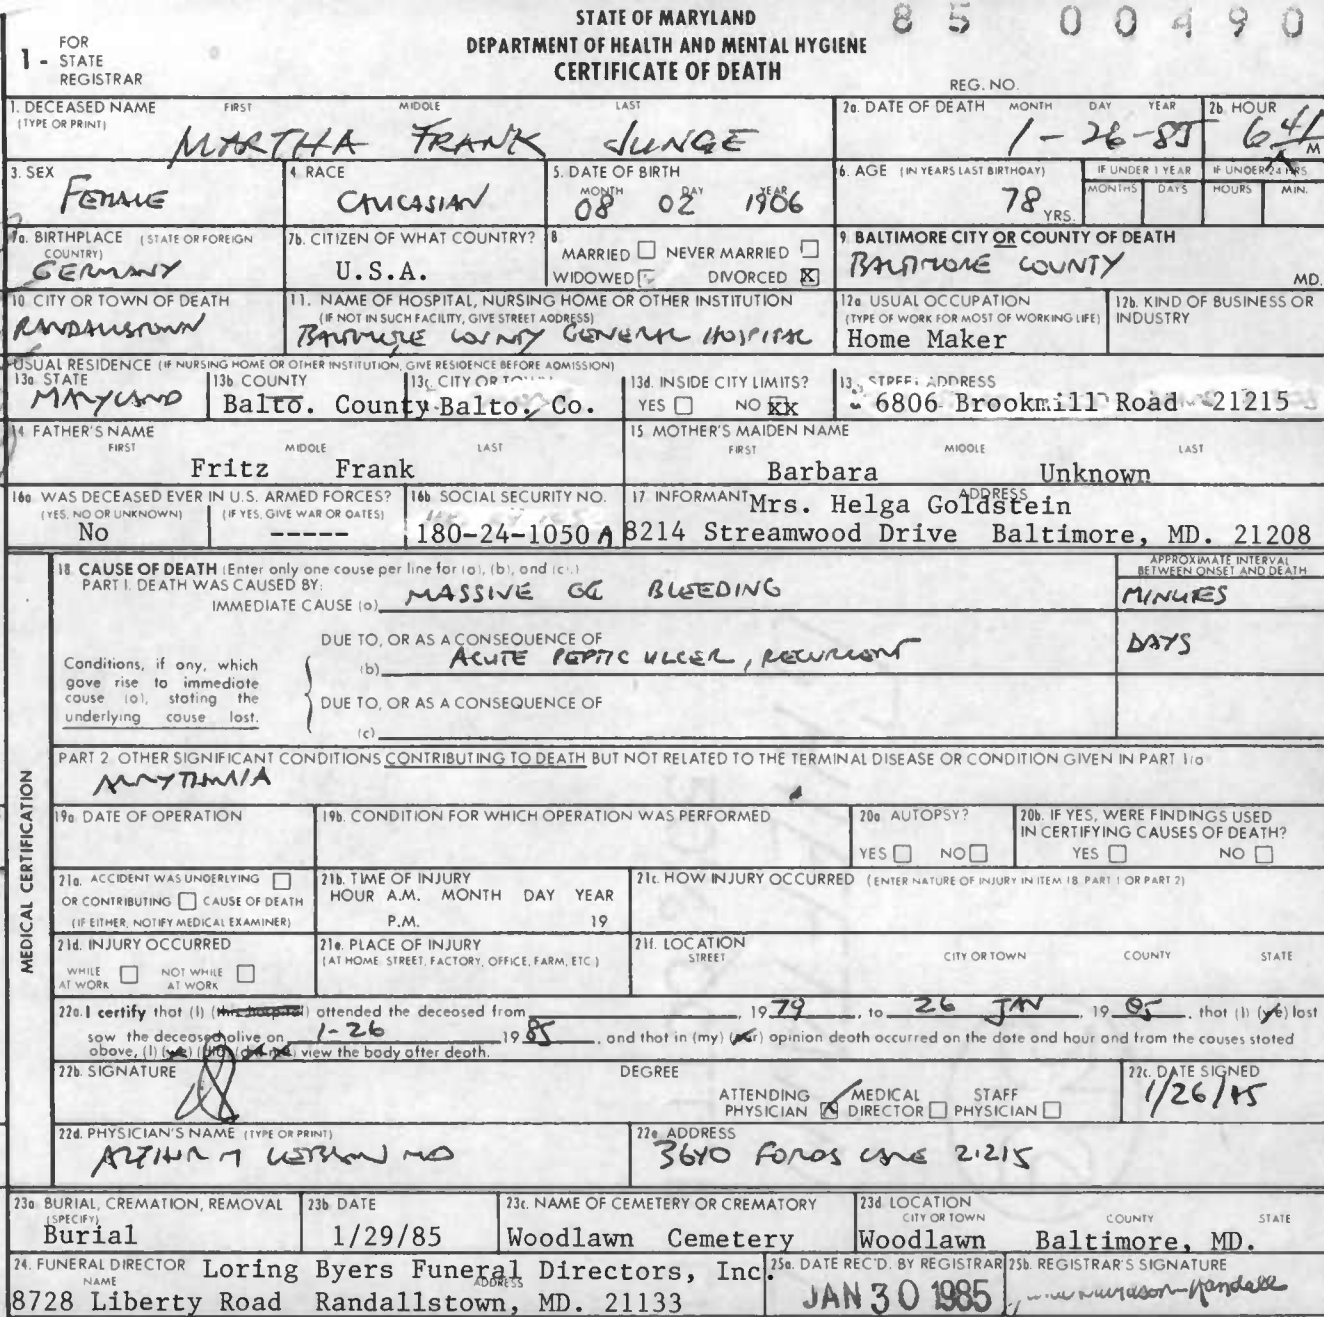 STATE OF MARYLAND
DEPARTMENT OF HEALTH AND MENTAL HYGIENE
CERTIFICATE OF DEATH
85 00490
1 - FOR STATE REGISTRAR
REG. NO.
1. DECEASED NAME (TYPE OR PRINT) FIRST MIDDLE LAST
MARTHA FRANK JUNGE
2a. DATE OF DEATH MONTH DAY YEAR
1-26-85
2b. HOUR
6 41 A M
3. SEX
FEMALE
4. RACE
CAUCASIAN
5. DATE OF BIRTH
MONTH DAY YEAR
08 02 1906
6. AGE (IN YEARS LAST BIRTHDAY)
78 YRS.
IF UNDER 1 YEAR
MONTHS DAYS
IF UNDER 24 HRS
HOURS MIN.
7a. BIRTHPLACE (STATE OR FOREIGN COUNTRY)
GERMANY
7b. CITIZEN OF WHAT COUNTRY?
U.S.A.
8
MARRIED NEVER MARRIED
WIDOWED DIVORCED X
9. BALTIMORE CITY OR COUNTY OF DEATH
BALTIMORE COUNTY MD.
10. CITY OR TOWN OF DEATH
RANDALLSTOWN
11. NAME OF HOSPITAL, NURSING HOME OR OTHER INSTITUTION
(IF NOT IN SUCH FACILITY, GIVE STREET ADDRESS)
BALTIMORE COUNTY GENERAL HOSPITAL
12a. USUAL OCCUPATION
(TYPE OF WORK FOR MOST OF WORKING LIFE)
Home Maker
12b. KIND OF BUSINESS OR INDUSTRY
USUAL RESIDENCE (IF NURSING HOME OR OTHER INSTITUTION, GIVE RESIDENCE BEFORE ADMISSION)
13a. STATE
MARYLAND
13b COUNTY
Balto. County
13c. CITY OR TOWN
Balto. Co.
13d. INSIDE CITY LIMITS?
YES NO XX
13. STREET ADDRESS
6806 Brookmill Road 21215
14 FATHER'S NAME
FIRST MIDDLE LAST
Fritz Frank
15 MOTHER'S MAIDEN NAME
FIRST MIDDLE LAST
Barbara Unknown
16a WAS DECEASED EVER IN U.S. ARMED FORCES?
(YES, NO OR UNKNOWN) (IF YES, GIVE WAR OR DATES)
No -----
16b SOCIAL SECURITY NO.
180-24-1050 A
17 INFORMANT ADDRESS
Mrs. Helga Goldstein
8214 Streamwood Drive Baltimore, MD. 21208
MEDICAL CERTIFICATION
18 CAUSE OF DEATH (Enter only one cause per line for (a), (b), and (c).)
APPROXIMATE INTERVAL BETWEEN ONSET AND DEATH
PART I. DEATH WAS CAUSED BY:
IMMEDIATE CAUSE (a) MASSIVE GI BLEEDING
MINUTES
DUE TO, OR AS A CONSEQUENCE OF
(b) ACUTE PEPTIC ULCER, RECURRENT
DAYS
Conditions, if any, which gave rise to immediate cause (a), stating the underlying cause last.
DUE TO, OR AS A CONSEQUENCE OF
(c)
PART 2 OTHER SIGNIFICANT CONDITIONS CONTRIBUTING TO DEATH BUT NOT RELATED TO THE TERMINAL DISEASE OR CONDITION GIVEN IN PART 1(a
ARRYTHMIA
19a. DATE OF OPERATION
19b. CONDITION FOR WHICH OPERATION WAS PERFORMED
20a AUTOPSY?
YES NO
20b. IF YES, WERE FINDINGS USED IN CERTIFYING CAUSES OF DEATH?
YES NO
21a. ACCIDENT WAS UNDERLYING
OR CONTRIBUTING CAUSE OF DEATH
(IF EITHER, NOTIFY MEDICAL EXAMINER)
21b. TIME OF INJURY
HOUR A.M. MONTH DAY YEAR
P.M. 19
21c. HOW INJURY OCCURRED (ENTER NATURE OF INJURY IN ITEM 18 PART 1 OR PART 2)
21d. INJURY OCCURRED
WHILE AT WORK NOT WHILE AT WORK
21e. PLACE OF INJURY
(AT HOME STREET, FACTORY, OFFICE, FARM, ETC.)
21f. LOCATION
STREET CITY OR TOWN COUNTY STATE
22a. I certify that (I) (this hospital) attended the deceased from 1979, to 26 JAN 1985, that (I) (we) last
saw the deceased alive on 1-26 1985, and that in (my) (our) opinion death occurred on the date and hour and from the causes stated
above, (I) (we) view the body after death.
22b. SIGNATURE
DEGREE
ATTENDING PHYSICIAN X MEDICAL DIRECTOR STAFF PHYSICIAN
22c. DATE SIGNED
1/26/85
22d. PHYSICIAN'S NAME (TYPE OR PRINT)
MD
22e ADDRESS
3640 FORDS LANE 21215
23a BURIAL, CREMATION, REMOVAL (SPECIFY)
Burial
23b DATE
1/29/85
23c. NAME OF CEMETERY OR CREMATORY
Woodlawn Cemetery
23d LOCATION
CITY OR TOWN COUNTY STATE
Woodlawn Baltimore, MD.
24. FUNERAL DIRECTOR
NAME ADDRESS
Loring Byers Funeral Directors, Inc.
8728 Liberty Road Randallstown, MD. 21133
25a. DATE REC'D. BY REGISTRAR
JAN 30 1985
25b. REGISTRAR'S SIGNATURE
Davidson-Randall